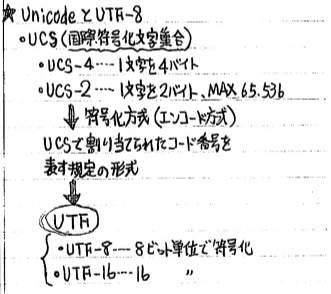 ★ UnicodeとUTF-8
•UCS(国際符号化文字集合)
•UCS-4‥‥1文字を4バイト
•UCS-2‥‥1文字を2バイト、MAX 65.536
符号化方式(エンコード方式)
UCSで割り当てられたコード番号を
表す規定の形式
UTF
•UTF-8‥‥8ビット単位で符号化
•UTF-16‥‥16 〃